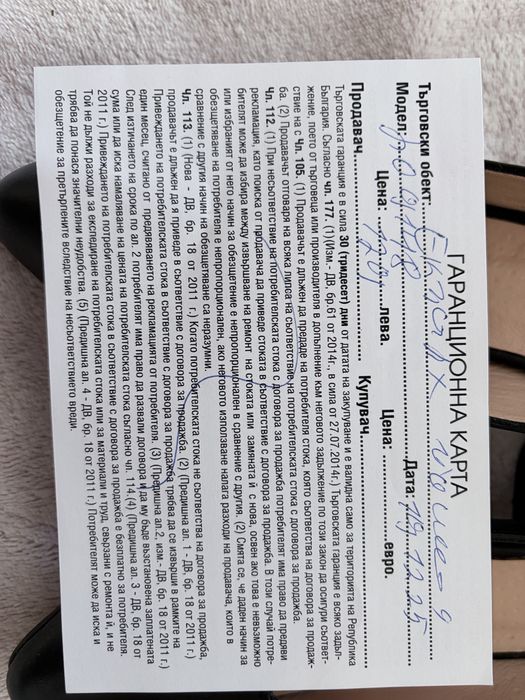 ГАРАНЦИОННА КАРТА
Търговски Обект:
Модел: Дата: 19.12.25
Цена: лева. Цена: евро.
Продавач Купувач
Търговската гаранция е в сила 30 (тридесет) дни от датата на закупуване и е валидна само за територията на Република
България. Съгласно чл. 177. (1)(Изм.- ДВ, бр.61 от 2014г., в сила от 27.07.2014г.) Търговската гаранция е всяко задъл-
жение, поето от търговеца или производителя в допълнение към неговото задължение по този закон да осигури съответ-
ствие на с Чл. 105. (1) Продавачът е длъжен да предаде на потребителя стока, която съответства на договора за продаж-
ба. (2) Продавачът отговаря на всяка липса на съответствие на потребителската стока с договора за продажба.
Чл. 112. (1) При несъответствие на потребителската стока с договора за продажба потребителят има право да предяви
рекламация, като поиска от продавача да приведе стоката в съответствие с договора за продажба. В този случай потре-
бителят може да избира между извършване на ремонт на стоката или замяната ѝ с нова, освен ако това е невъзможно
или избраният от него начин за обезщетение е непропорционален в сравнение с другия. (2) Смята се, че даден начин за
обезщетяване на потребителя е непропорционален, ако неговото използване налага разходи на продавача, които в
сравнение с другия начин на обезщетяване са неразумни.
Чл. 113. (1) (Нова - ДВ, бр. 18 от 2011 г.) Когато потребителската стока не съответства на договора за продажба,
продавачът е длъжен да я приведе в съответствие с договора за продажба. (2) (Предишна ал. 1 - ДВ, бр. 18 от 2011 г.)
Привеждането на потребителската стока в съответствие с договора за продажба трябва да се извърши в рамките на
един месец, считано от предявяването на рекламацията от потребителя. (3) (Предишна ал.2, изм.- ДВ, бр. 18 от 2011 г.)
След изтичането на срока по ал. 2 потребителят има право да развали договора и да му бъде възстановена заплатената
сума или да иска намаляване на цената на потребителската стока съгласно чл. 114.(4) (Предишна ал. 3 - ДВ, бр. 18 от
2011 г.) Привеждането на потребителската стока в съответствие с договора за продажба е безплатно за потребителя.
Той не дължи разходи за експедиране на потребителската стока или за материали и труд, свързани с ремонта ѝ, и не
трябва да понася значителни неудобства. (5) (Предишна ал. 4 - ДВ, бр. 18 от 2011 г.) Потребителят може да иска и
обезщетение за претърпените вследствие на несъответствието вреди.